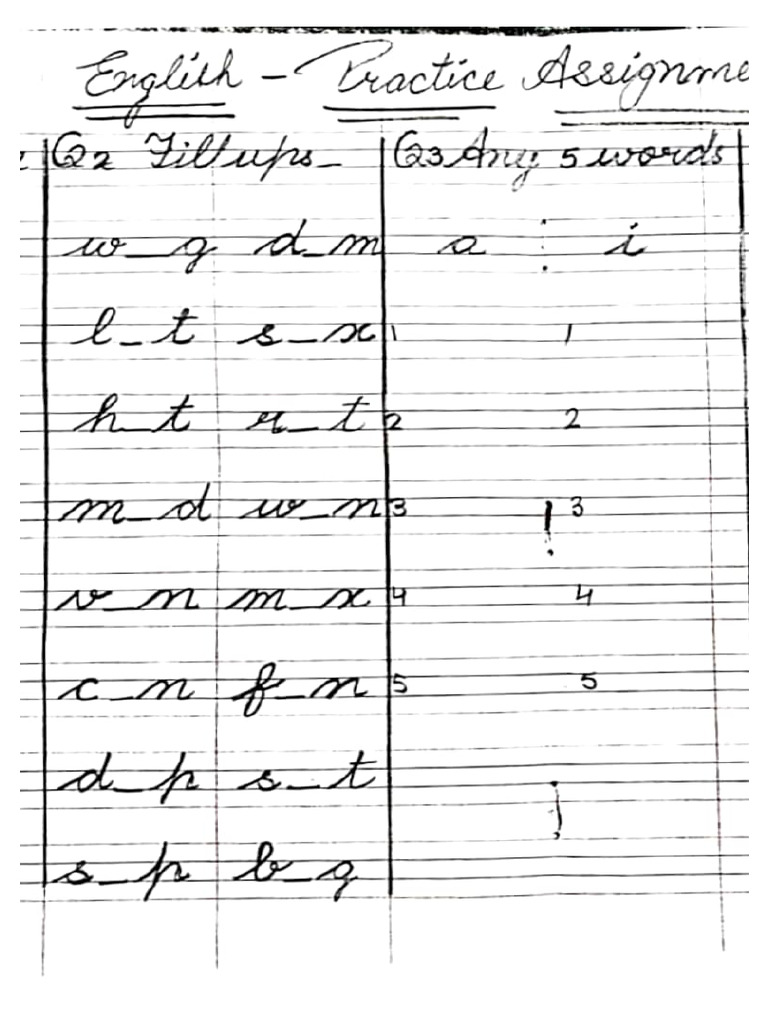 English - Practice Assignme
Q2 Fill ups - Q3 Any 5 words
w_g d_m a i
l_t s_x 1 1
h_t r_t 2 2
m_d w_n 3 3
v_n m_x 4 4
c_n f_n 5 5
d_p s_t
s_p b_g